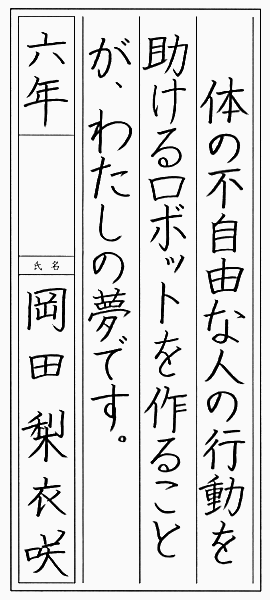 体の不自由な人の行動を
助けるロボットを作ること
が、わたしの夢です。
六年
氏名
岡田梨衣咲